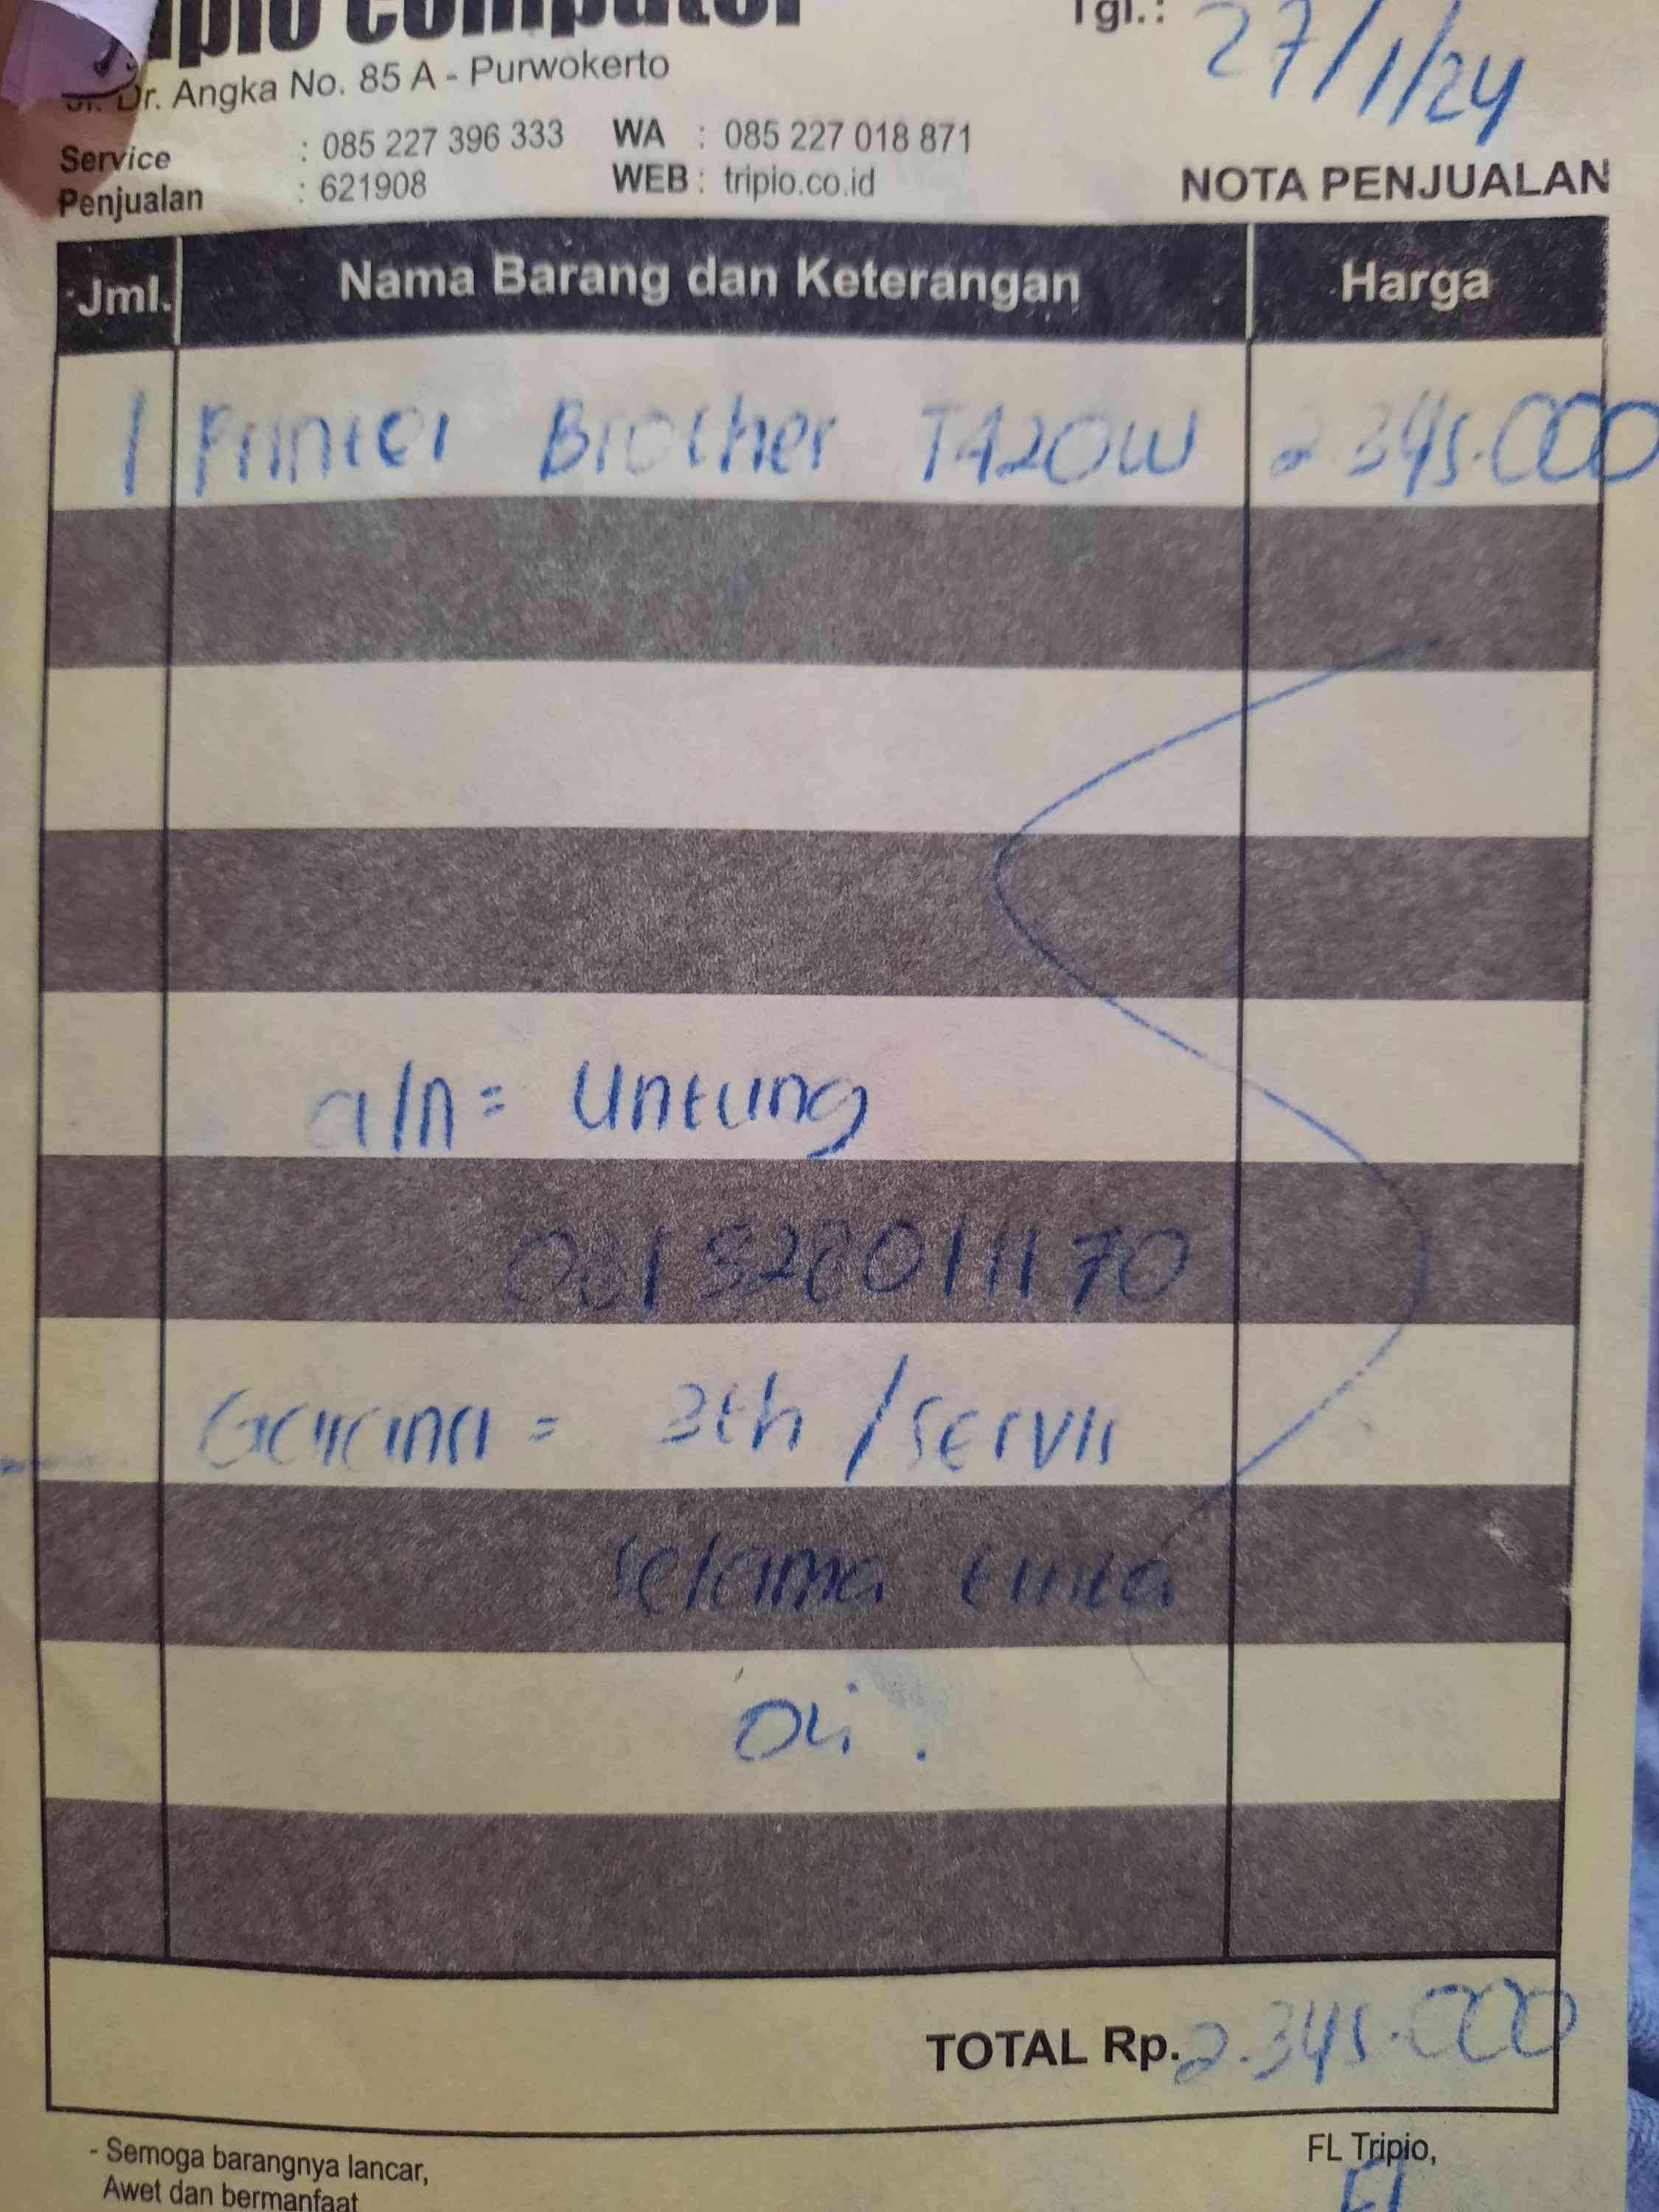 Tripio Computer
Jl. Dr. Angka No. 85 A - Purwokerto
Tgl.: 27/1/24
Service : 085 227 396 333 WA : 085 227 018 871
Penjualan : 621908 WEB : tripio.co.id
NOTA PENJUALAN
Jml. Nama Barang dan Keterangan Harga
1 Printer Brother T420W 2.345.000
a/n = Untung
Garansi = 3th / servis
selama tinta
ori.
TOTAL Rp. 2.345.000
- Semoga barangnya lancar,
Awet dan bermanfaat
FL Tripio,